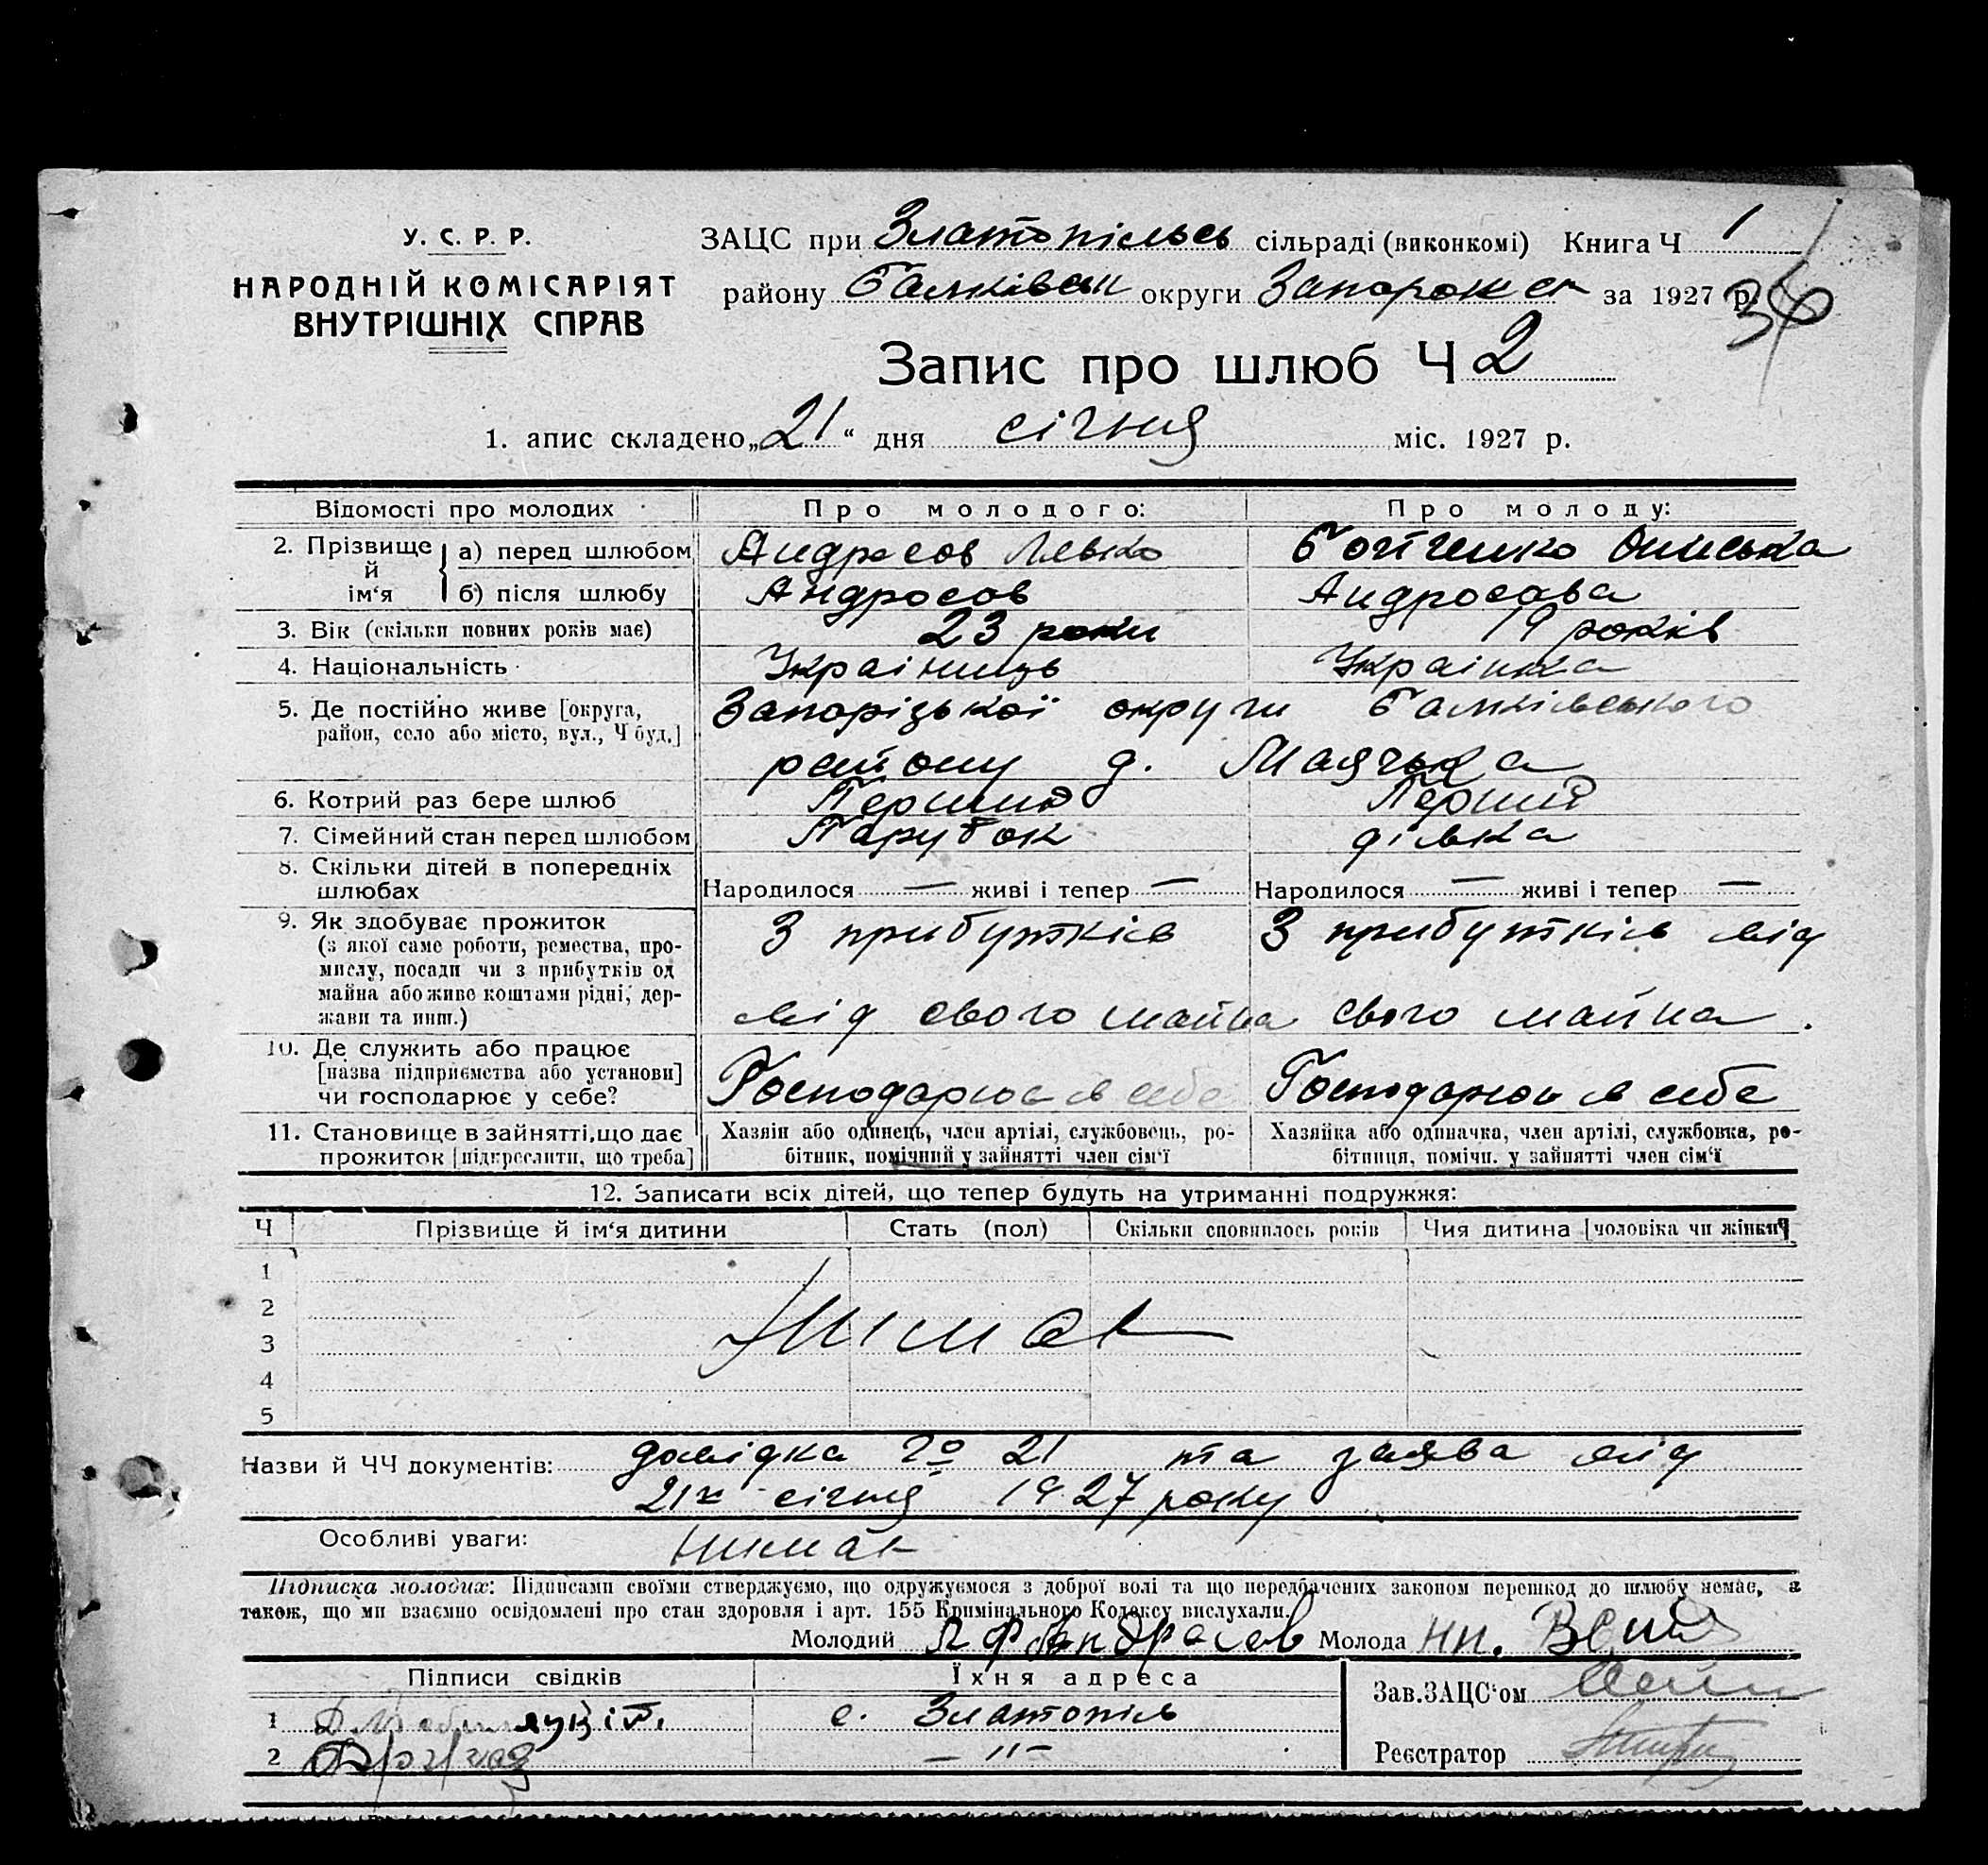 У. С. Р. Р.
НАРОДНІЙ КОМІСАРІЯТ
ВНУТРІШНІХ СПРАВ
ЗАЦС при Златопільсь сільраді (виконкомі) Книга Ч 1
району Балківськ округи Запорожск за 1927 р.
34
Запис про шлюб Ч 2
1. апис складено „21“ дня січня міс. 1927 р.
Відомості про молодих Про молодого: Про молоду:
2. Прізвище й ім‘я а) перед шлюбом Андросов Левко Бойченко Ониська
б) після шлюбу Андросов Андросова
3. Вік (скільки повних років має) 23 роки 19 років
4. Національність Українець Українка
5. Де постійно живе [округа, район, село або місто, вул., Ч буд.] Запорізької округи Балківського
району д. Маячька
6. Котрий раз бере шлюб Перший Перший
7. Сімейний стан перед шлюбом Парубок дівка
8. Скільки дітей в попередніх шлюбах Народилося — живі і тепер — Народилося — живі і тепер —
9. Як здобуває прожиток
(з якої саме роботи, ремества, про-
мислу, посади чи з прибутків од
майна або живе коштами рідні, дер-
жави та инш.)
З прибутків від свого майна
З прибутків від свого майна.
10. Де служить або працює
[назва підприємства або установи]
чи господарює у себе?
Господарює в себе Господарює в себе
11. Становище в зайнятті, що дає
прожиток [підкреслити, що треба]
Хазяїн або одинець, член артілі, службовець, ро-
бітник, помічний у зайнятті член сім‘ї
Хазяйка або одиначка, член артілі, службовка, ро-
бітниця, помічн. у зайнятті член сім‘ї
12. Записати всіх дітей, що тепер будуть на утриманні подружжя:
Ч Прізвище й ім‘я дитини Стать (пол) Скільки сповнилось років Чия дитина [чоловіка чи жінки]
1
2
3
4
5
Нимає
Назви й ЧЧ документів: довідка № 21 та заява від
21го січня 1927 року
Особливі уваги: нимає
Підписка молодих: Підписами своїми стверджуємо, що одружуємося з доброї волі та що передбачених законом перешкод до шлюбу немає, а
також, що ми взаємно освідомлені про стан здоровля і арт. 155 Кримінального Кодексу вислухали.
Молодий Андросов Молода нп.
Підписи свідків Їхня адреса
1 с. Златопіль
2 — „ —
Зав. ЗАЦС‘ом
Реєстратор